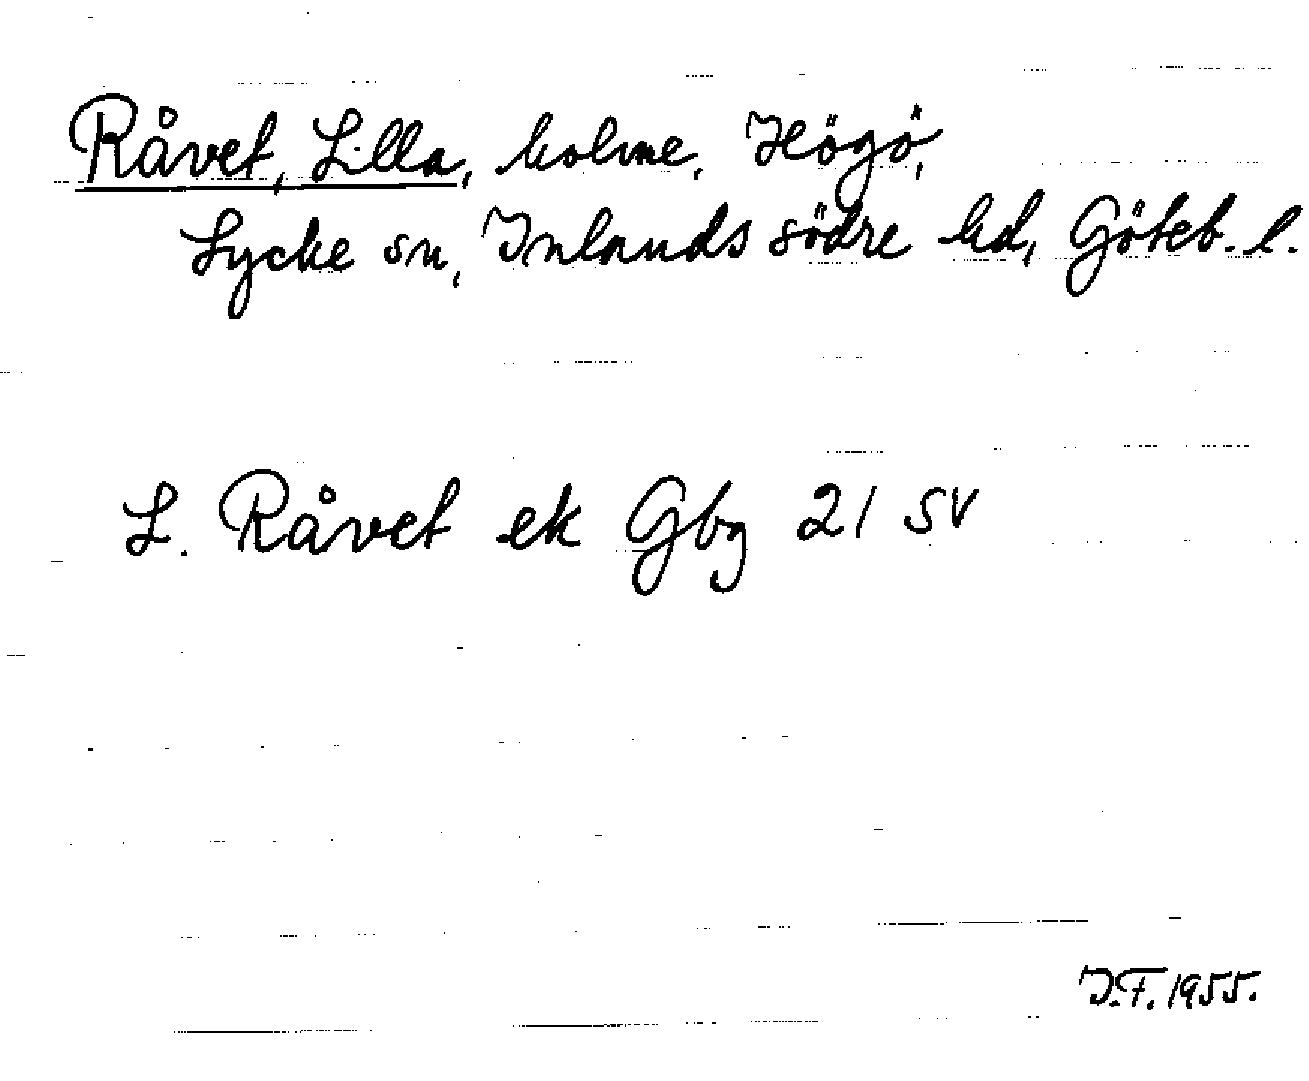 Råvet, Lilla, holme, Högö,
Lycke sn, Inlands södre hd, Göteb. l.
L. Råvet ek Gbg 21 SV
I.F. 1955.